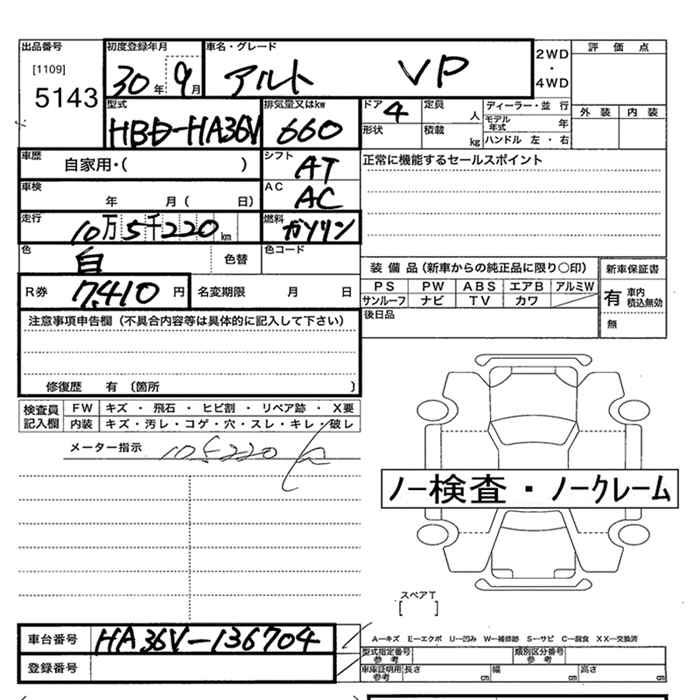 出品番号 初度登録年月 車名・グレード 2WD・4WD 評価点
[1109] 5143 30年 9月 アルト VP 外装 内装
型式 HBD-HA36V 排気量又はkw 660 ドア 4 定員 人 ディーラー・並行
形状 積載 kg モデル年式 年 ハンドル 左・右
車歴 自家用・( ) シフト AT 正常に機能するセールスポイント
車検 年 月( 日) AC AC
走行 10万5千220km 燃料 ガソリン
色 色替 色コード
装備品(新車からの純正品に限り〇印) 新車保証書
R券 7,410円 名変期限 月 日 PS PW ABS エアB アルミW 有 車内積込無効
サンルーフ ナビ TV カワ
注意事項申告欄(不具合内容等は具体的に記入して下さい) 後日品 無
修復歴 有(箇所 )
検査員記入欄 FW キズ・飛石・ヒビ割・リペア跡・X要
内装 キズ・汚レ・コゲ・穴・スレ・キレ・破レ
メーター指示 105220
ノー検査・ノークレーム
スペアT
[ ]
車台番号 HA36V-136704 A―キズ E―エクボ U―凹み W―補修跡 S―サビ C―腐食 XX―交換済
型式指定番号 参考 類別区分番号 参考
登録番号 車庫証明 参考 長さ cm 幅 cm 高さ cm